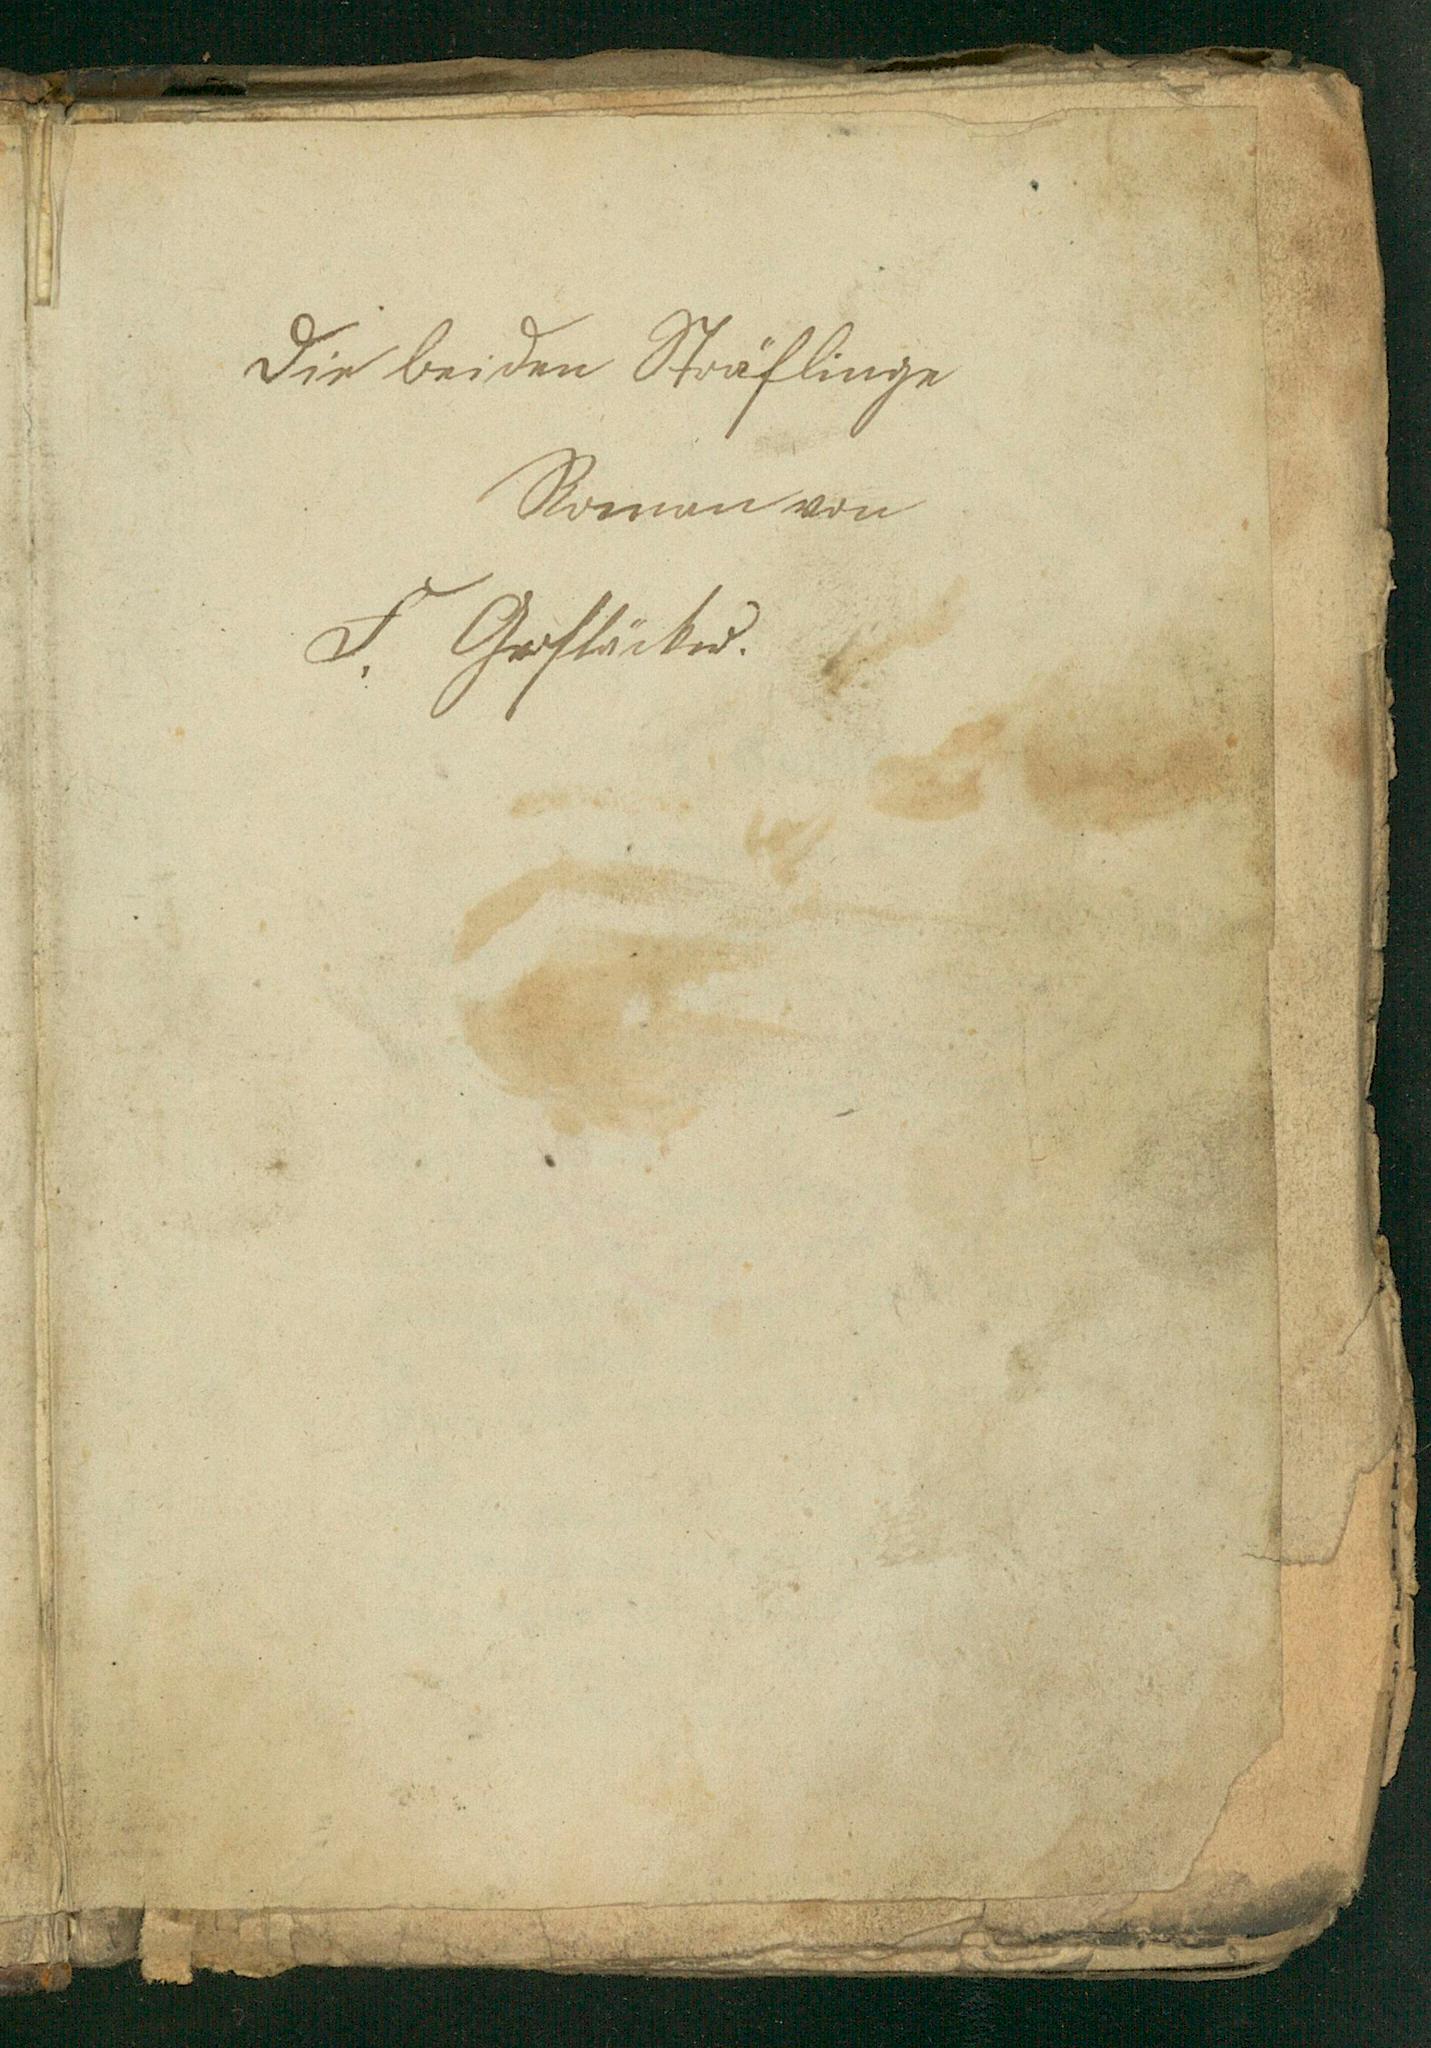 Die beiden Sträflinge
Roman von
F. Gerstäcker.